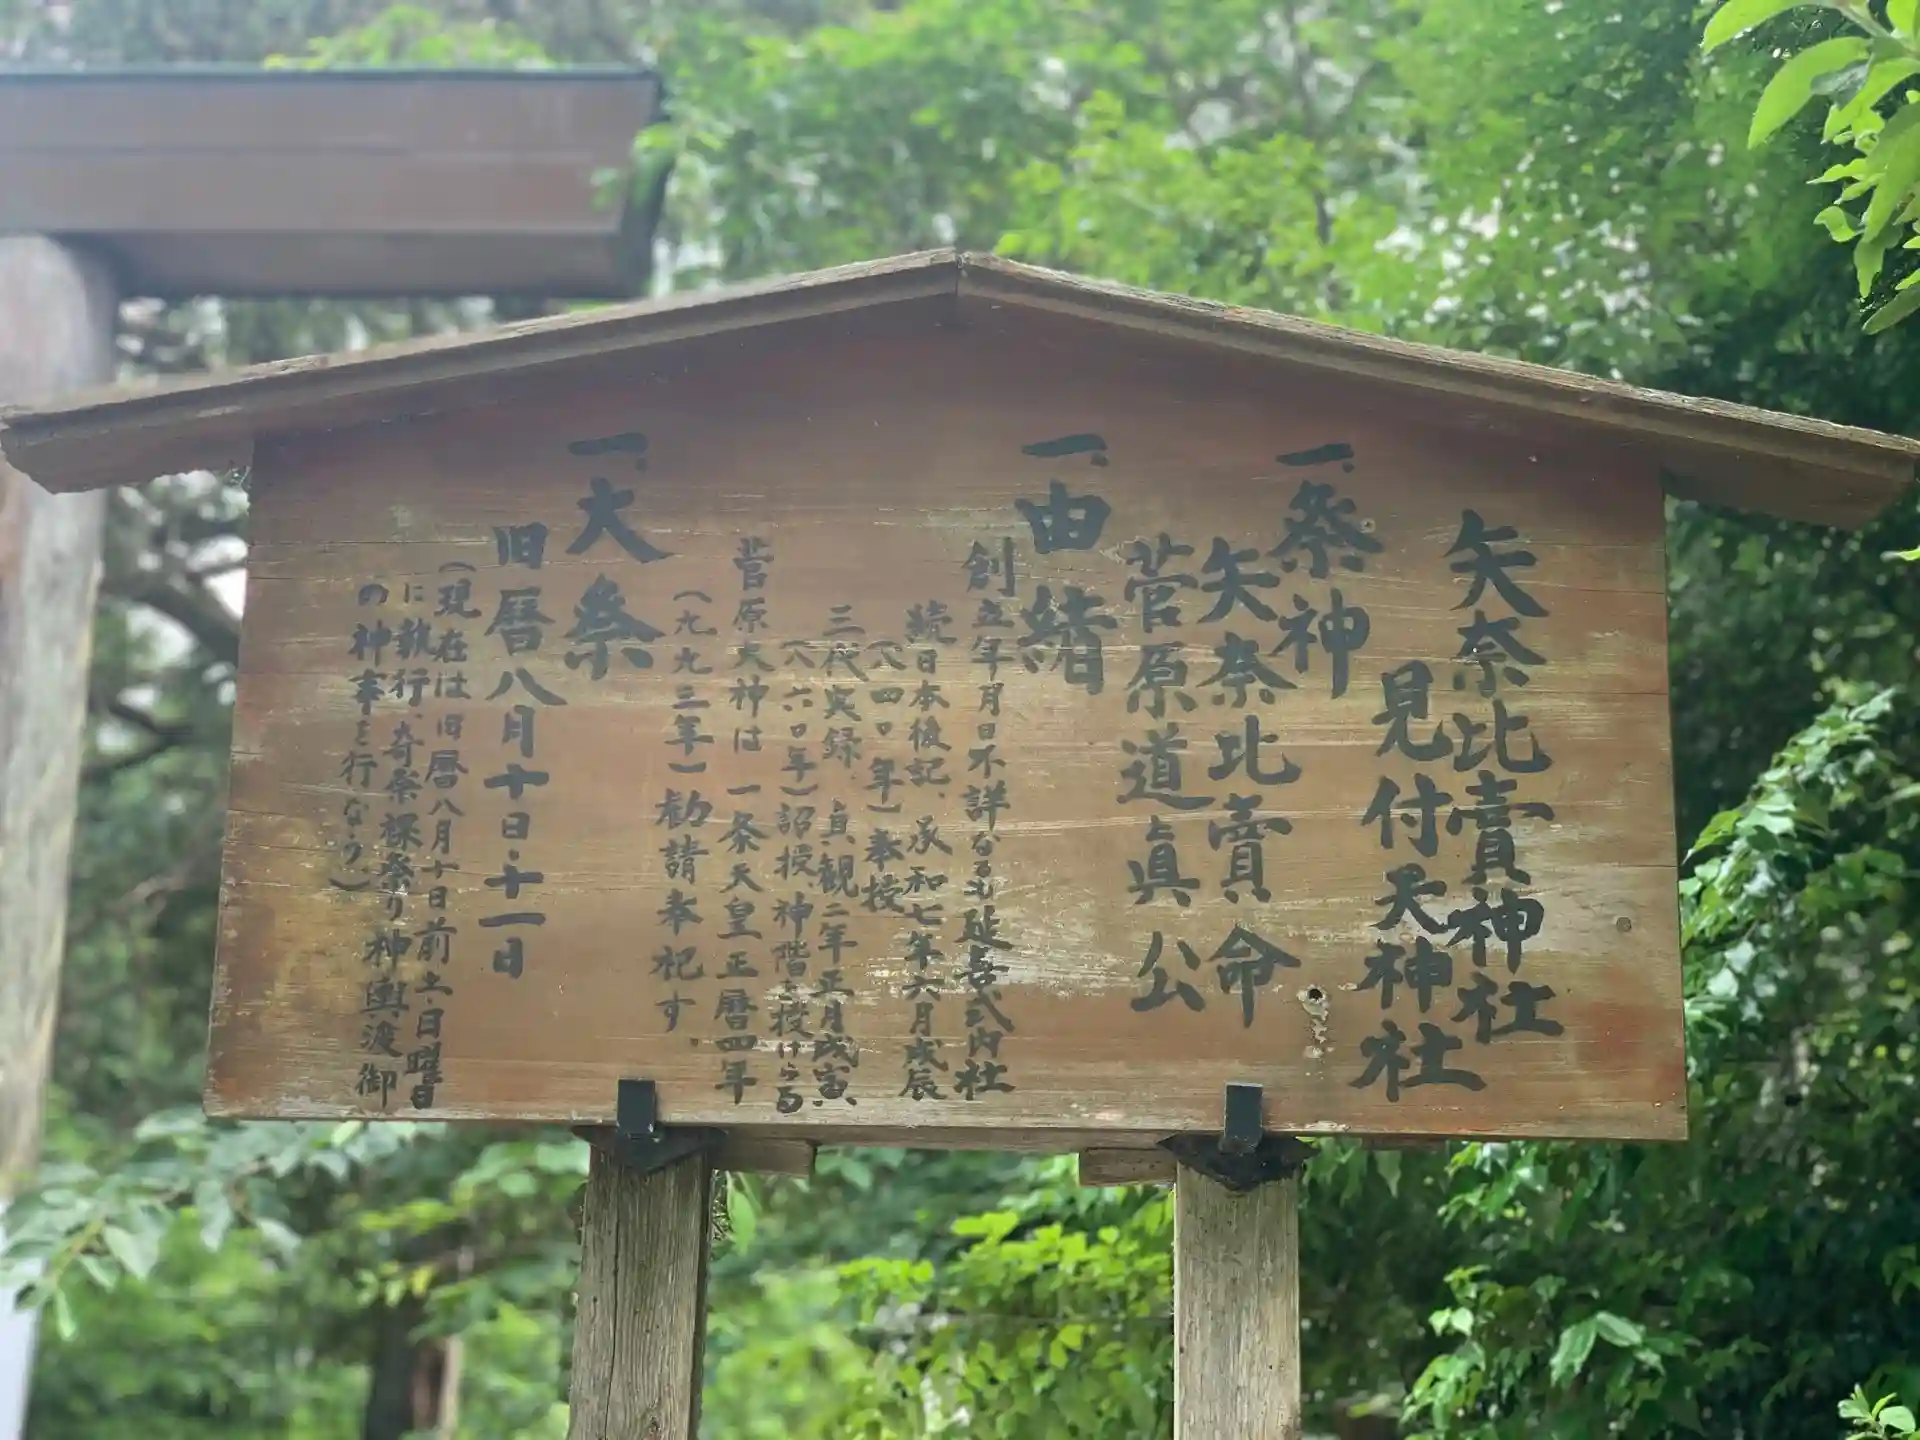 矢奈比賣神社
見付天神社
一、祭神
矢奈比賣命
菅原道眞公
一、由緒
創立年月日不詳なるも延喜式内社
続日本後記、承和七年六月戊辰
（八四〇年）奉授
三代実録、貞観二年正月戊寅、
（八六〇年）詔授、神階を授けらる
菅原大神は一条天皇正暦四年
（九九三年）勧請奉祀す。
一、大祭
旧暦八月十日・十一日
（現在は旧暦八月十日前土・日曜日
に執行、奇祭裸祭り神輿渡御
の神事を行なう。）